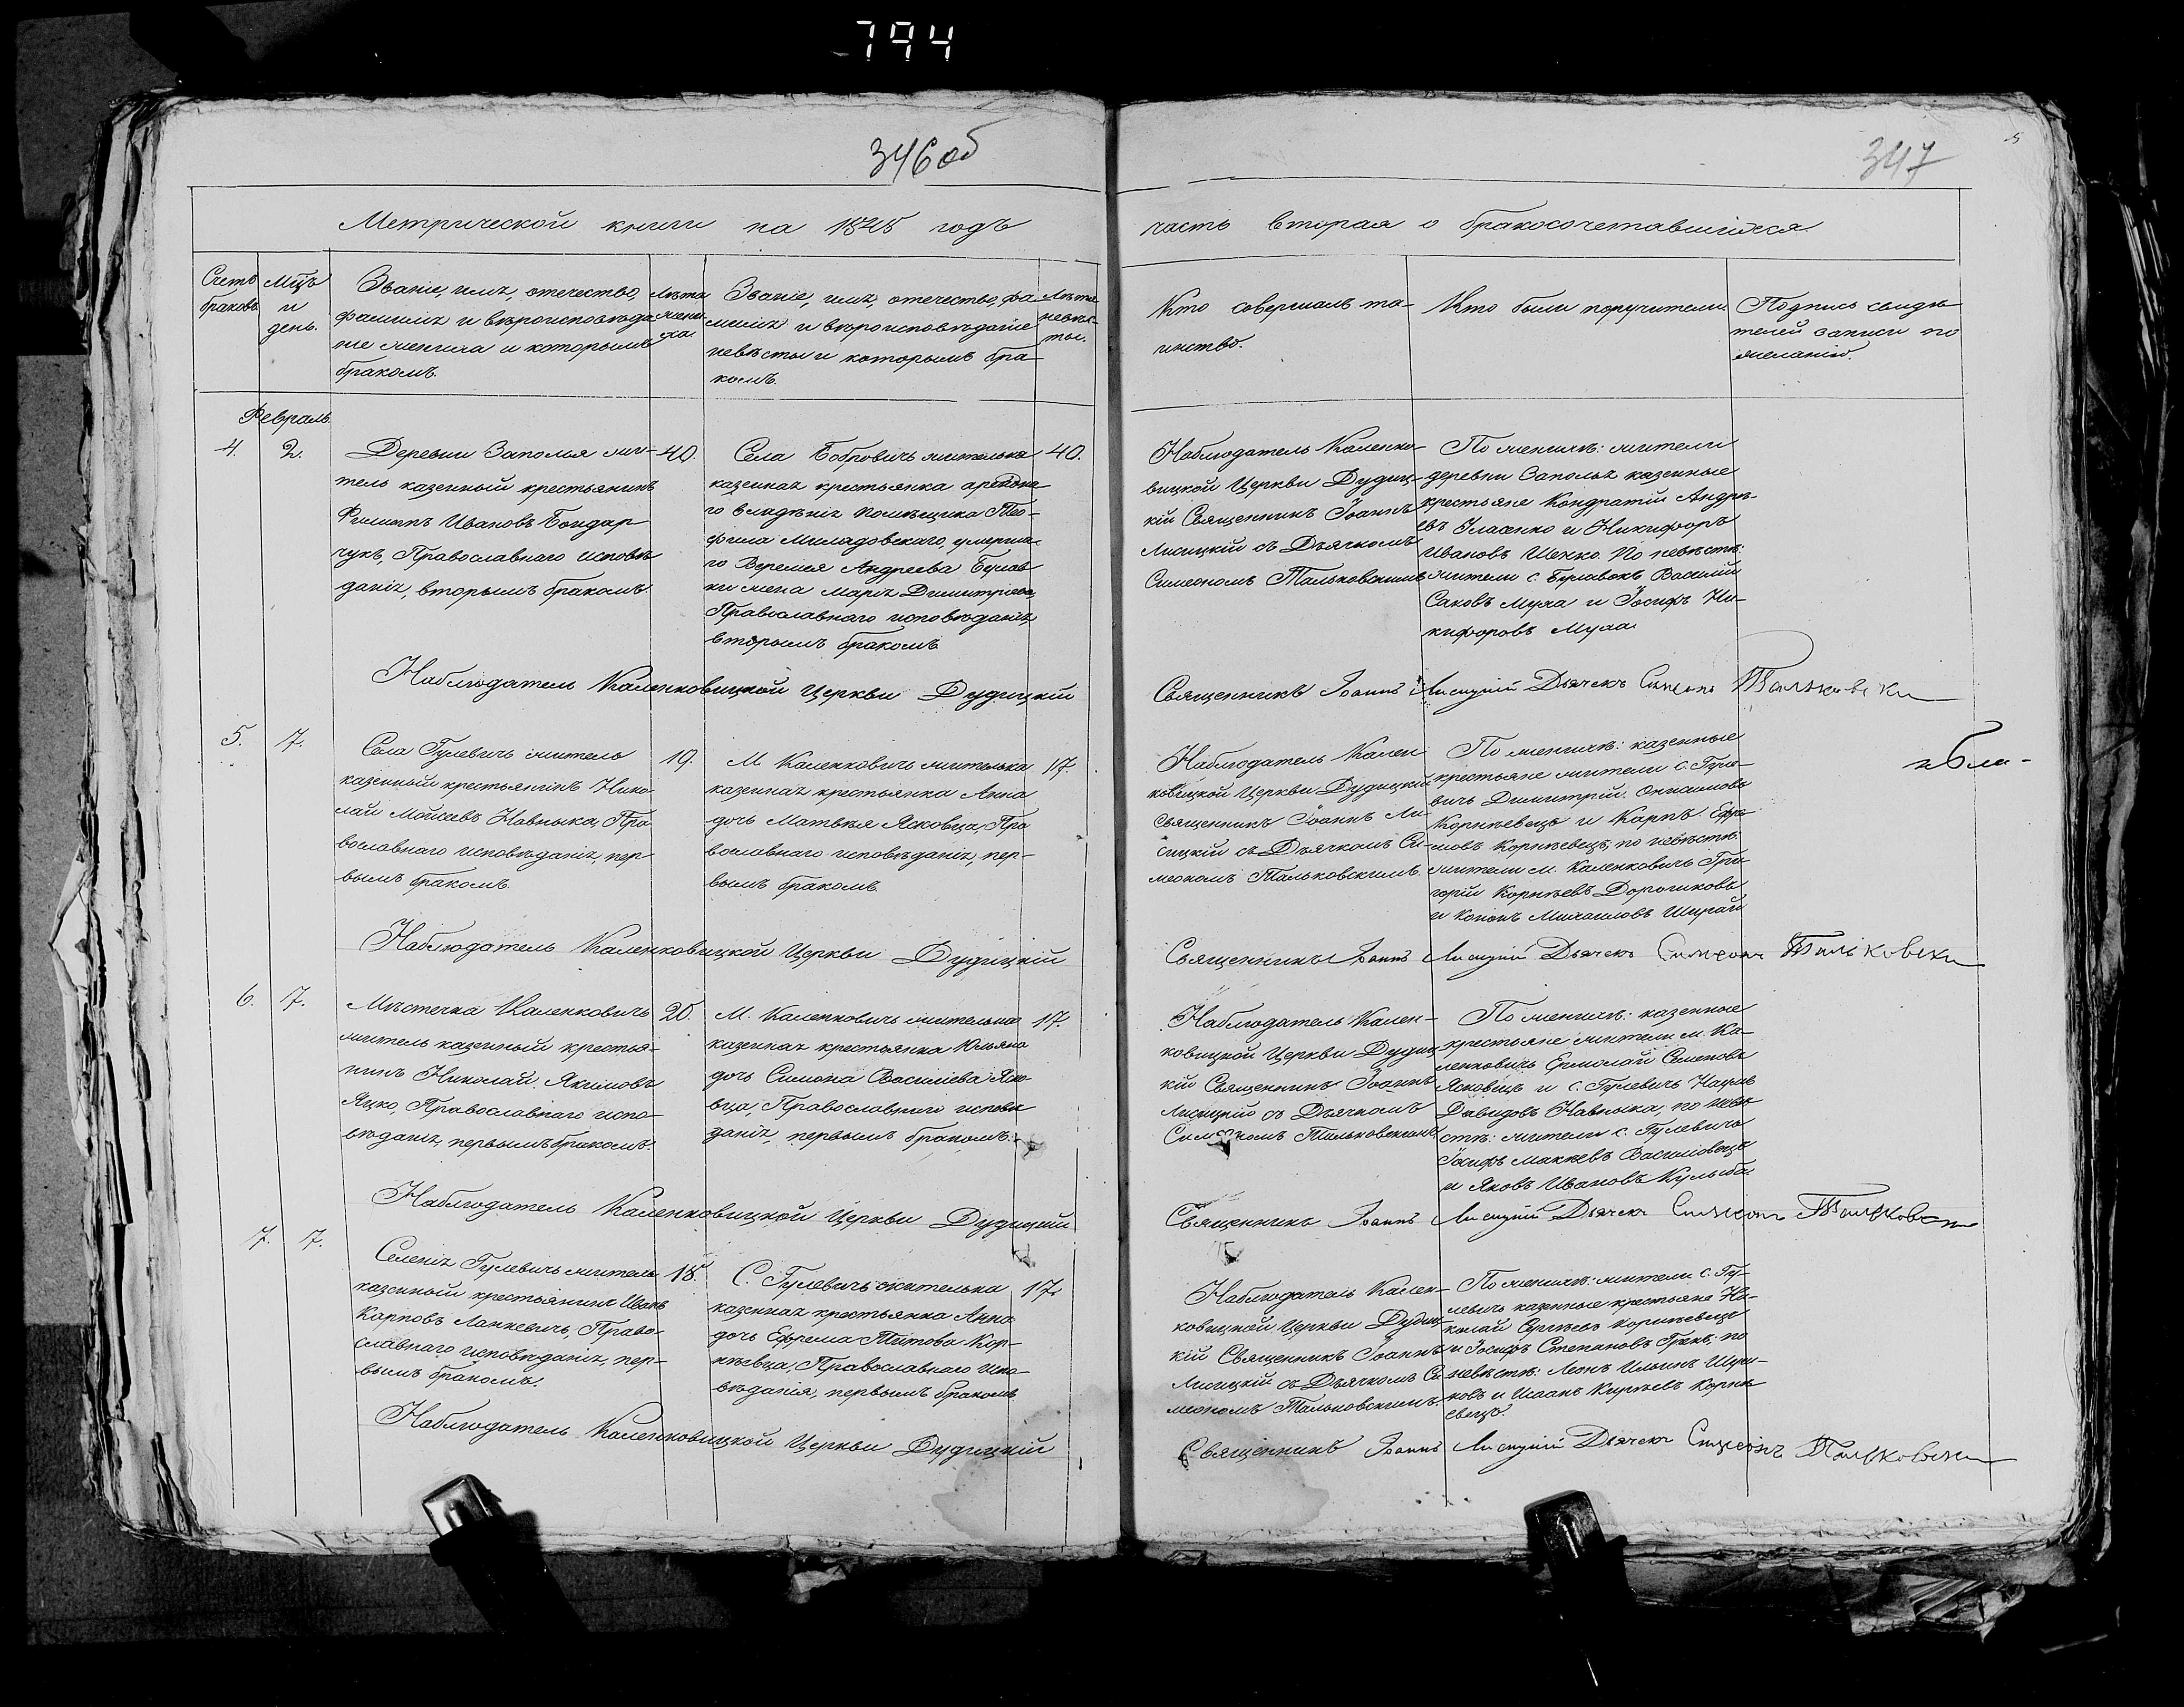 794
346об
347
Метрической книги на 1848 годъ
часть вторая о бракосочетавшихся
Счетъ браковъ.
Мцъ и день.
Званіе, имя, отечество,
фамилія и вѣроисповѣда
ніе жениха и которымъ
бракомъ.
Лѣта
жени
ха.
Званіе, имя, отечество, фа
милія и вѣроисповѣданіе
невѣсты и которымъ бра
комъ.
Лѣта
невѣс
ты.
Кто совершалъ та-
инство.
Кто были поручители.
Подпись свидѣ
телей записи по
желанію.
Февраль
4. 2.
Деревни Заполья жи-
тель казенный крестьянинъ
Филиппъ Ивановъ Бондар
чукъ, Православнаго исповѣ
данія, вторымъ бракомъ.
40.
Села Бобровичь жителька
казенная крестьянка арендна
го владѣнія помѣщика Тео-
фила Миладовскаго, умерша
го Веремея Андреева Булав
ки жена Марія Димитріева,
Православнаго исповѣданія,
вторымъ бракомъ
40.
Наблюдатель Каленко-
вицкой Церкви Дудиц-
кій Священникъ Іоаннъ
Лисицкій съ Дьячкомъ
Симеономъ Тальковскимъ
По женихѣ: жители
деревни Заполья казенные
крестьяне Кондратій Андрѣ-
евъ и Никифоръ
Ивановъ Шекко. По невѣстѣ:
жители с. Булавокъ Василій
Саковъ Муха и Іосифъ Ни-
кифоровъ Муха.
Наблюдатель Каленковицкой Церкви Дудицкій Священникъ Іоаннъ Лисицкій Дьячекъ Симеонъ Тальковски
5. 7.
Села Гулевичь житель
казенный крестьянинъ Нико
лай Моисеевъ Навныка, Пра
вославнаго исповѣданія, пер
вымъ бракомъ.
19.
М. Каленковичь жителька
казенная крестьянка Анна
дочь Матвѣя Ясковца, Пра
вославнаго исповѣданія, пер-
вымъ бракомъ.
17.
Наблюдатель Кален
ковицкой Церкви Дудицкій
Священникъ Іоаннъ Ли
сицкій съ Дьячкомъ Си
меономъ Тальковскимъ.
По женихѣ: казенные
крестьяне жители с. Гуле-
вичь Димитрій Онисимовъ
Корнѣевецъ и Карпъ Ефре
мовъ Корнѣевецъ, по невѣстѣ:
жители м. Каленковичь Гри
горій Корнѣевъ Дорошковъ
и Кононъ Михаиловъ Шурай
Наблюдатель Каленковицкой Церкви Дудицкій Священникъ Іоаннъ Лисицкій Дьячекъ Симеонъ Тальковски
6. 7.
Мѣстечка Каленковичь
житель казенный крестья-
нинъ Николай Якимовъ
Яцко, Православнаго испо-
вѣданія, первымъ бракомъ.
20.
М. Каленковичь жителька
казенная крестьянка Юльяна
дочь Симона Василіева Яско-
вца, Православнаго исповѣ
данія, первымъ бракомъ.
17.
Наблюдатель Кален-
ковицкой Церкви Дудиц
кій Священникъ Іоаннъ
Лисицкій съ Дьячкомъ
Симеономъ Тальковскимъ
По женихѣ: казенные
крестьяне жители м. Ка-
ленковичь Ермолай Семеновъ
Ясковецъ и с. Гулевичь Наумъ
Давидовъ Навныка, по невѣ
стѣ: жители с. Гулевичь
Іосифъ Макѣевъ Василовецъ
и Яковъ Ивановъ Кульба.
Наблюдатель Каленковицкой Церкви Дудицкій Священникъ Іоаннъ Лисицкій Дьячекъ Симеонъ Тальковски
7. 7.
Селенія Гулевичь житель
казенный крестьянинъ Иванъ
Карповъ Ланкевичь, Право-
славнаго исповѣданія, пер-
вымъ бракомъ.
18.
С. Гулевичь жителька
казенная крестьянка Анна
дочь Ефрема Титова Кор-
нѣевца, Православнаго испо
вѣданія, первымъ бракомъ
17.
Наблюдатель Кален-
ковицкой Церкви Дудиц
кій Священникъ Іоаннъ
Лисицкій съ Дьячкомъ Си
меономъ Тальковскимъ.
По женихѣ: жители с. Гу-
левичь казенные крестьяне Ни-
колай Сергѣевъ Корнѣевецъ
и Іосифъ Степановъ Грекъ; по
невѣстѣ: Леонъ Ильинъ
и Исаакъ Кирѣевъ Корнѣ
евецъ.
Наблюдатель Каленковицкой Церкви Дудицкій Священникъ Іоаннъ Лисицкій Дьячекъ Симеонъ Тальковски